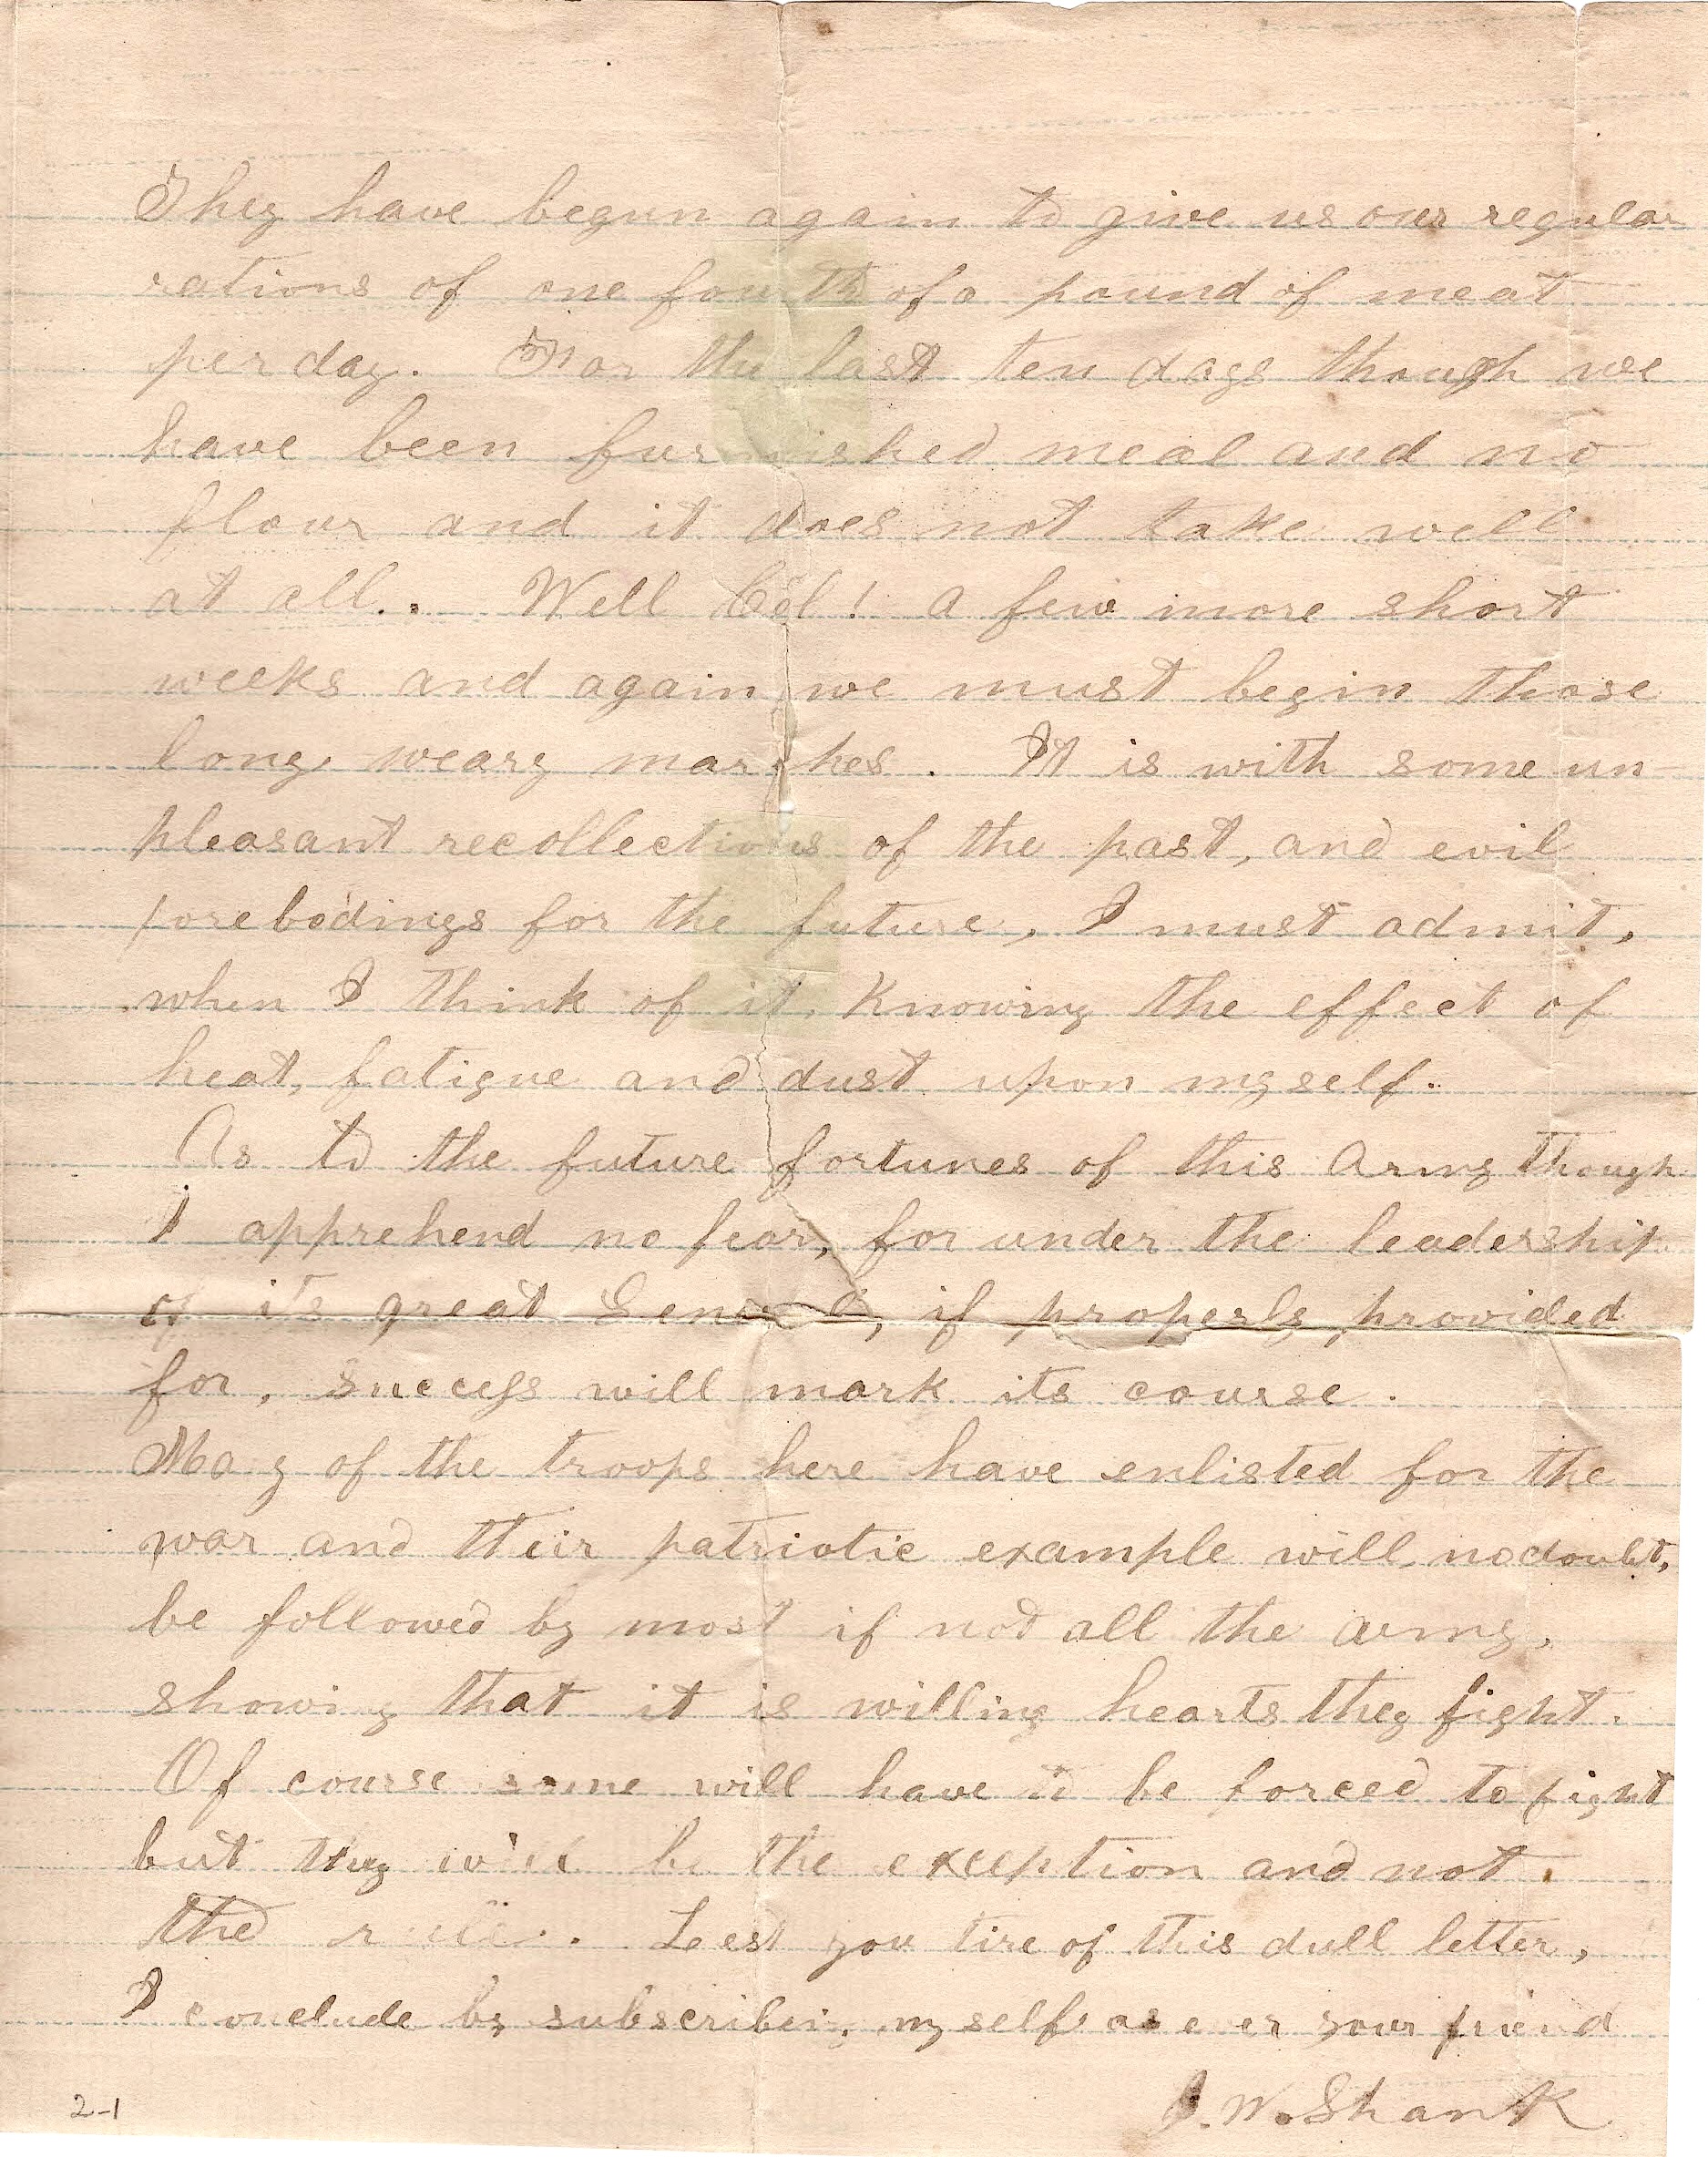 They have begun again to give us our regular
rations of one fourth of a pound of meat
per day. For the last ten days though we
have been furnished meal and no
flour and it does not take well
at all. Well Col! a few more short
weeks and again we must begin those
long weary marches. It is with some un-
pleasant recollections of the past, and evil
forebodings for the future, I must admit,
when I think of it, Knowing the effect of
heat, fatigue and dust upon myself.
As to the future fortunes of this Army though
I apprehend no fear, for under the leadership
of its great General, if properly provided
for, success will mark its course.
Many of the troops here have enlisted for the
war and their patriotic example will, no doubt,
be followed by most if not all the army,
showing that it is willing hearts they fight.
Of course some will have to be forced to fight
but they will be the exception and not
the rule. Leest you tire of this dull letter,
I conclude by subscribing myself as ever your friend
J. W. Shank
2-1